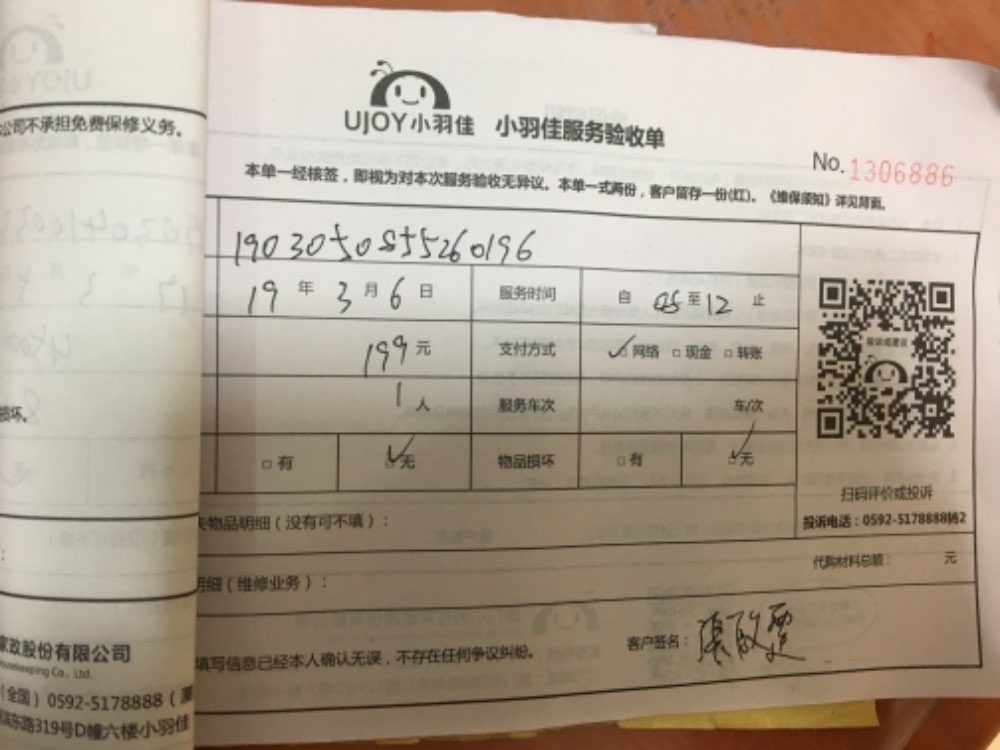 UJOY小羽佳 小羽佳服务验收单
No.1306886
本单一经核签，即视为对本次服务验收无异议。本单一式两份，客户留存一份(红)。《维保须知》详见背面。
1903050855260196
19 年 3 月 6 日 服务时间 自 08 至 12 止
199 元 支付方式 ✓网络 □现金 □转账
1 人 服务车次 车/次
□有 ✓无 物品损坏 □有 ✓无
投诉或建议
扫码评价或投诉
投诉电话：0592-5178888转2
物品明细（没有可不填）：
代购材料总额： 元
明细（维修业务）：
填写信息已经本人确认无误，不存在任何争议纠纷。
客户签名：
公司不承担免费保修义务。
损坏。
家政股份有限公司
Housekeeping Co., Ltd.
（全国）0592-5178888（厦
滨东路319号D幢六楼小羽佳